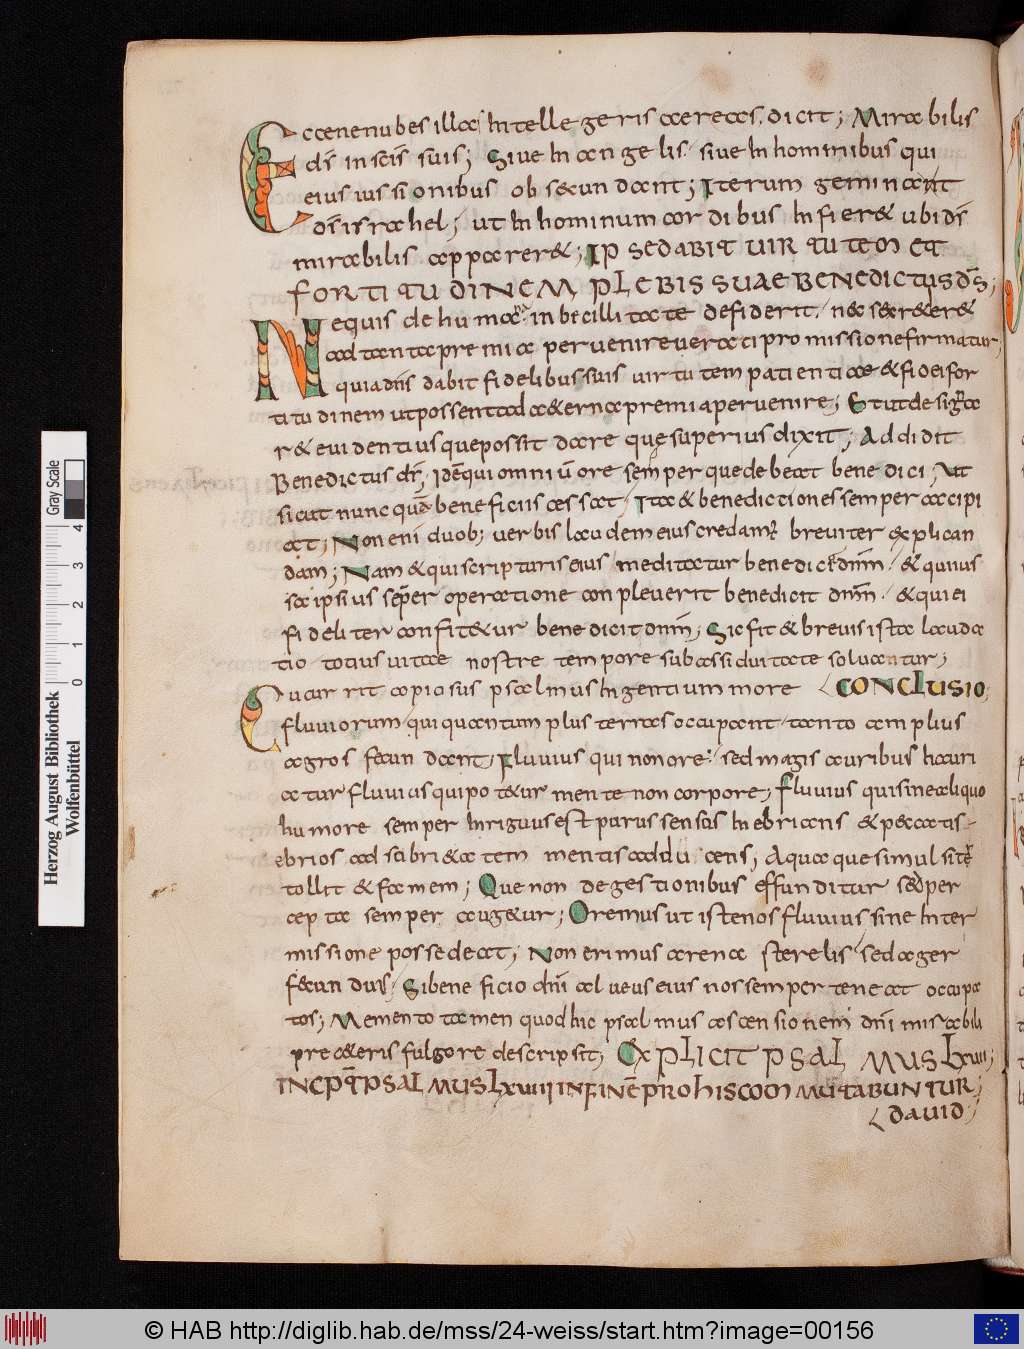 Eccenenubes illas intellegeris aereas. dicit; Mirabilis
ds̄ in sc̄is suis; Siue in angelis. siue in hominibus qui
eius iussionibus obsecundant; Iterum geminant
ds̄ israhel; ut in hominum cordibus infieret ubi ds̄
mirabilis appareret; IPSE DABIT UIRTUTEM ET
FORTITUDINEM PLEBIS SUAE BENEDICTUS DS̄;
Nequis de humana inbecillitate defiderit. nec se credere&
ad tanta premia peruenire uera ei promissione firmatur;
quia dn̄s dabit fidelibus suis uirtutem patientiae & fidei for
titudinem ut possent ad aeterna premia peruenire; Et ut designa
r& euidentius que possit dare que superius dixit; Addidit
Benedictus ds̄; Idē qui omniū ore semper quedebeat benedici; Ut
sicut nunc quā beneficiis cessat. Ita & benedictiones semper accipi
at; Non eni duob; uerbis laudem eius credam; breuiter explican
dam; Nam & qui scripturis eius meditatur benedicit dnm̄. & qui ius
sa ipsius sep̄er operatione conpleuerit benedicit dnm̄. & qui ei
fideliter confit&ur benedicit dnm̄; Sic fit & breuis ista lauda
tio totius uitae nostre tempore sub assiduitate soluantur;
Cucurrit copiosus psalmus ingentium more CONCLUSIO;
fluuiorum. qui quantum plus terras occupant. tanto amplius
agros fecundant; Fluuius qui non ore. sed magis auribus hauri
atur fluuius qui pot&ur mente non corpore; Fluuius qui sine aliquo
humore semper inriguus est purus sensus inebrians & peccatis
ebrios ad sabri&atem mentis adducens; Aqua que simul sitē
tollit & famem; Que non degestionibus effunditur sed per
cepta semper aug&ur; Oremus ut iste nos fluuius sine inter
missione possedeat; Non erimus arena sterelis. sed ager
fecundus. Si beneficio dn̄i alueus eius nos semper teneat occupa
tos; Memento tamen quod hic psalmus ascensionem dn̄i mirabili
pre ceteris fulgore descripsit; EXPLICIT PSALMUS LXVII;
INCP̄T PSALMUS LXVIII IN FINĒ PRO HIS COMMUTABUNTUR;
DAUID;
Herzog August Bibliothek
Wolfenbüttel
0 1 2 3 4
Gray Scale
© HAB http://diglib.hab.de/mss/24-weiss/start.htm?image=00156